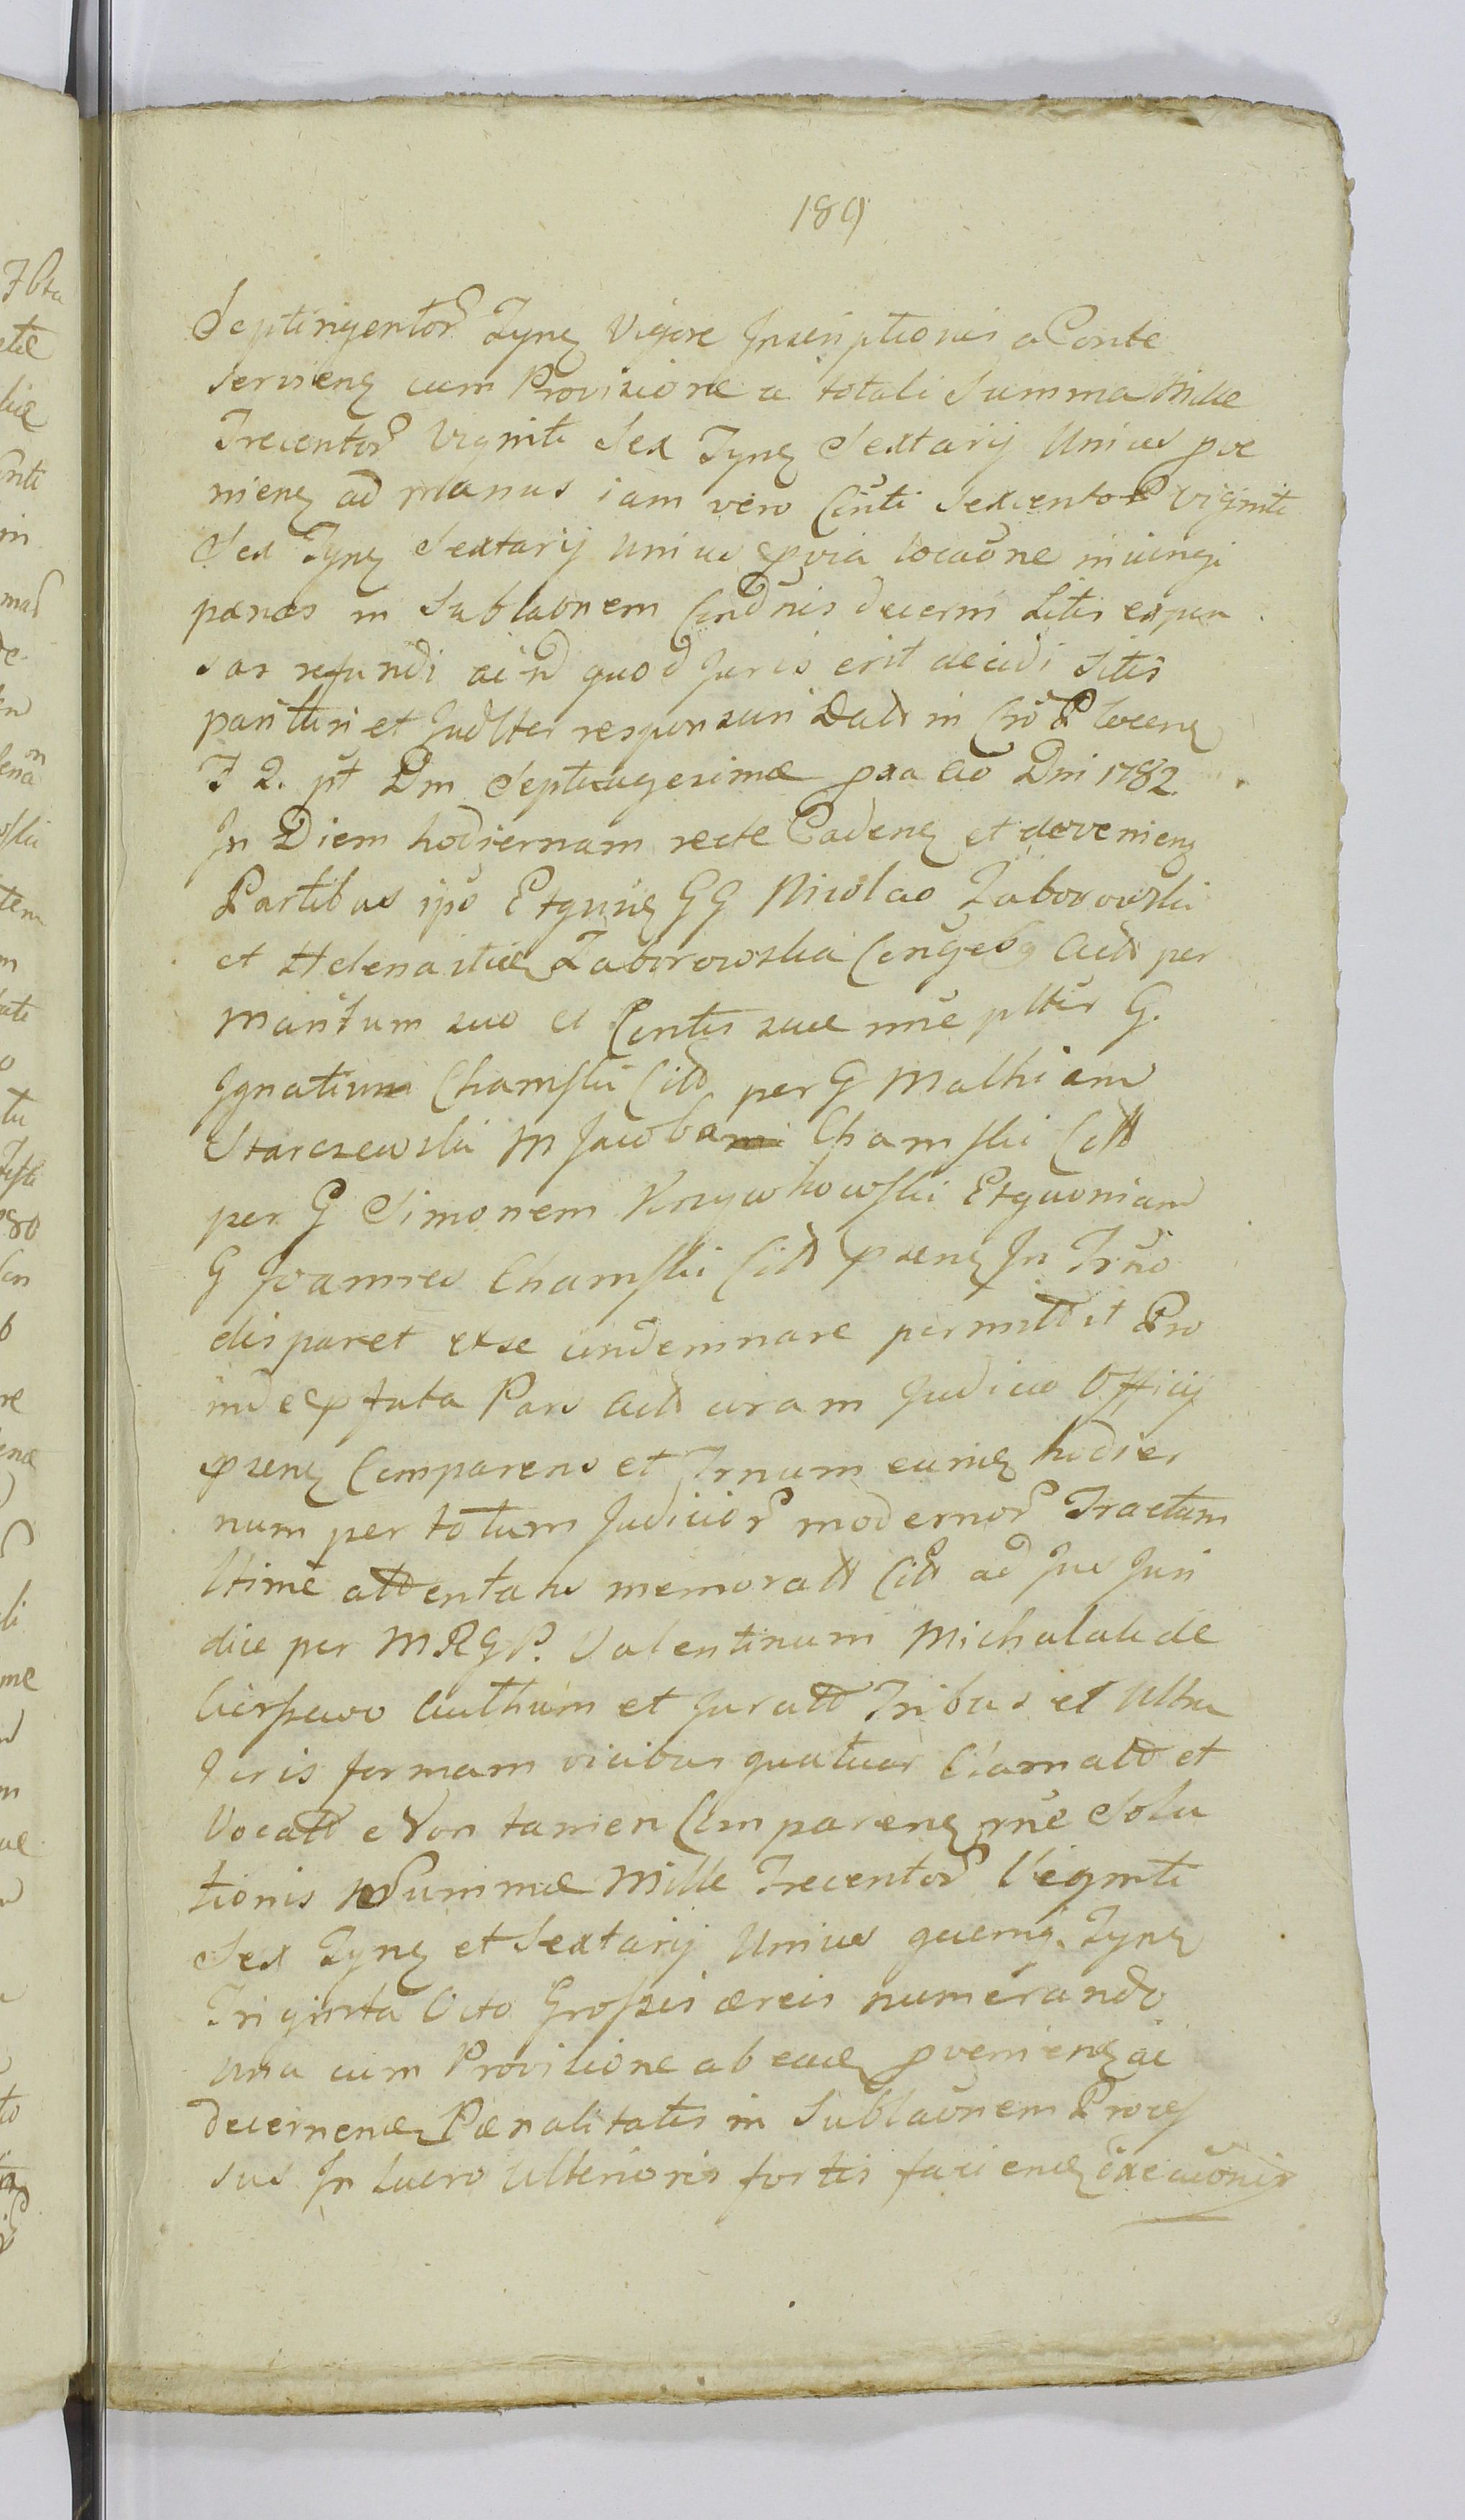 189
Septingentor Zyng Vigore Inscriptionis a Conte
servieng cum Provisione a totali Summa Mille
Trecentor Viginti Sex Zyng Sextarij Unius pve
nieng ad manus iam vero Cinti Sexcentor Viginti
Sex Zyng Sextarij unius pvia locaone iniungi
pænas in Sublaonem Condnis decerni Litis expen
sas refundi aind quod Juris erit decidi Sitis
parituri et Judlter responsuri Datt in P
F 2. pt Dm Septuagesimæ pxa ao Dni 1782.
In Diem hodiernam recte Cadeng et devenieng
Partibus ipö Etquüg GG Nicolao Zaborowski
et Helena Zaborowska Actt per
maritum suo et Contis suæ nñe plter G.
Ignatium Chamski Citt per G Mathiam
Starczewski M Jacobum Chamski Citt
per G Simonem Krzywkowski Etquoniam
G Joannes Chamski Citt pseng In Trño
disparet et se condemnare permittit Pro
inde ptata Pars Actt coram Judicio Officij
pseng Comparens et Trnum eumq hodier
num per totum Judicior modernor Tractum
ltime attentans memoratt Citt ad Jus Juri
dice per MRGP. Valentinum Michalak de
Cierpiewo Authum et Juratt Tribus et Ultra
Juris formam vicibus quatuor Clamatt et
Vocatt Non tamen Compareng rñe Solu
tionis Summæ Mille Trecentor Viginti
Sex Zyng et Sextarij Unius quemq Zyng
Triginta Octo Grossis æreis numerando
una cum Provisione ab eadq pvenieng ac
decerneng Pænalitatis in Sublaonem Proces
sus In lucro Ulterioris fortis faciendæ exeaonis